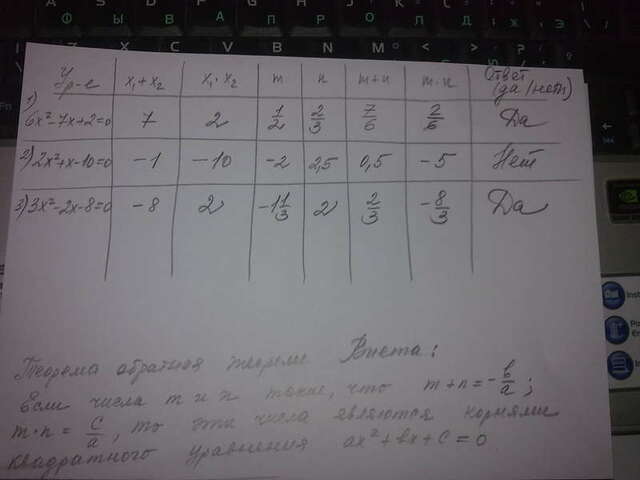 Ур-е x₁+x₂ x₁·x₂ m n m+n m·n Ответ (да/нет)
1) 6x²-7x+2=0 7 2 1/2 2/3 7/6 2/6 Да
2) 2x²+x-10=0 -1 -10 -2 2,5 0,5 -5 Нет
3) 3x²-2x-8=0 -8 2 -1 1/3 2 2/3 -8/3 Да
Теорема обратная теореме Виета:
Если числа m и n такие, что m+n=-b/a;
m·n=c/a, то эти числа являются корнями
квадратного уравнения ax²+bx+c=0